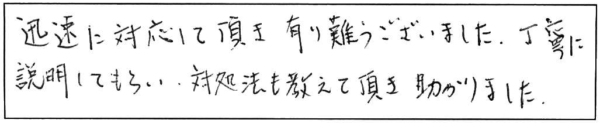 迅速に対応して頂き有り難うございました.丁寧に
説明してもらい.対処法も教えて頂き助かりました.